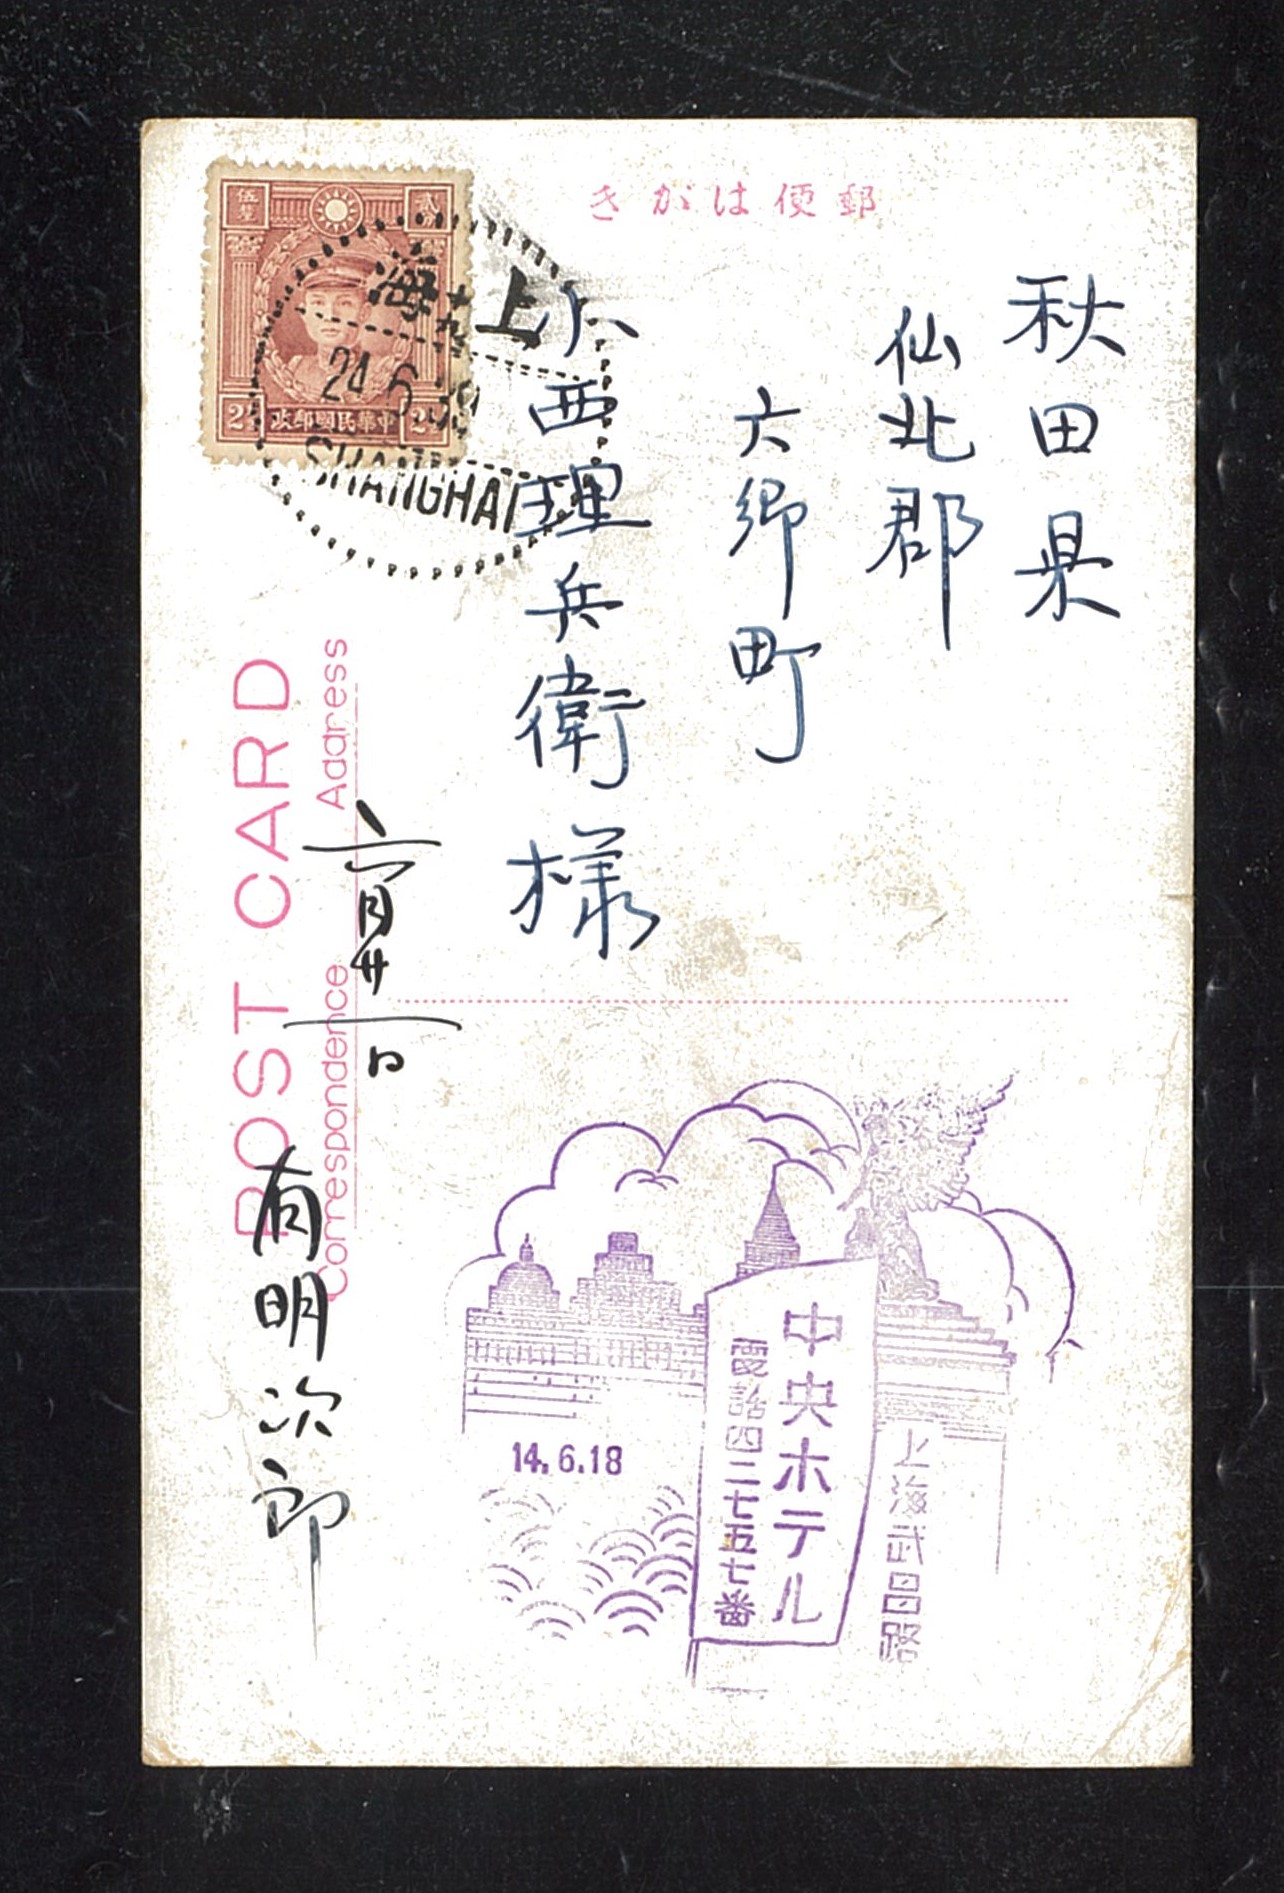 郵便はがき
秋田県
仙北郡
六郷町
小西理兵衛様
伍釐
貳分
2½
中華民國郵政
上海
24 6 39
SHANGHAI
POST CARD
Correspondence
Address
六月廿一日
有明次郎
上海武昌路
中央ホテル
電話四二七五七番
14.6.18